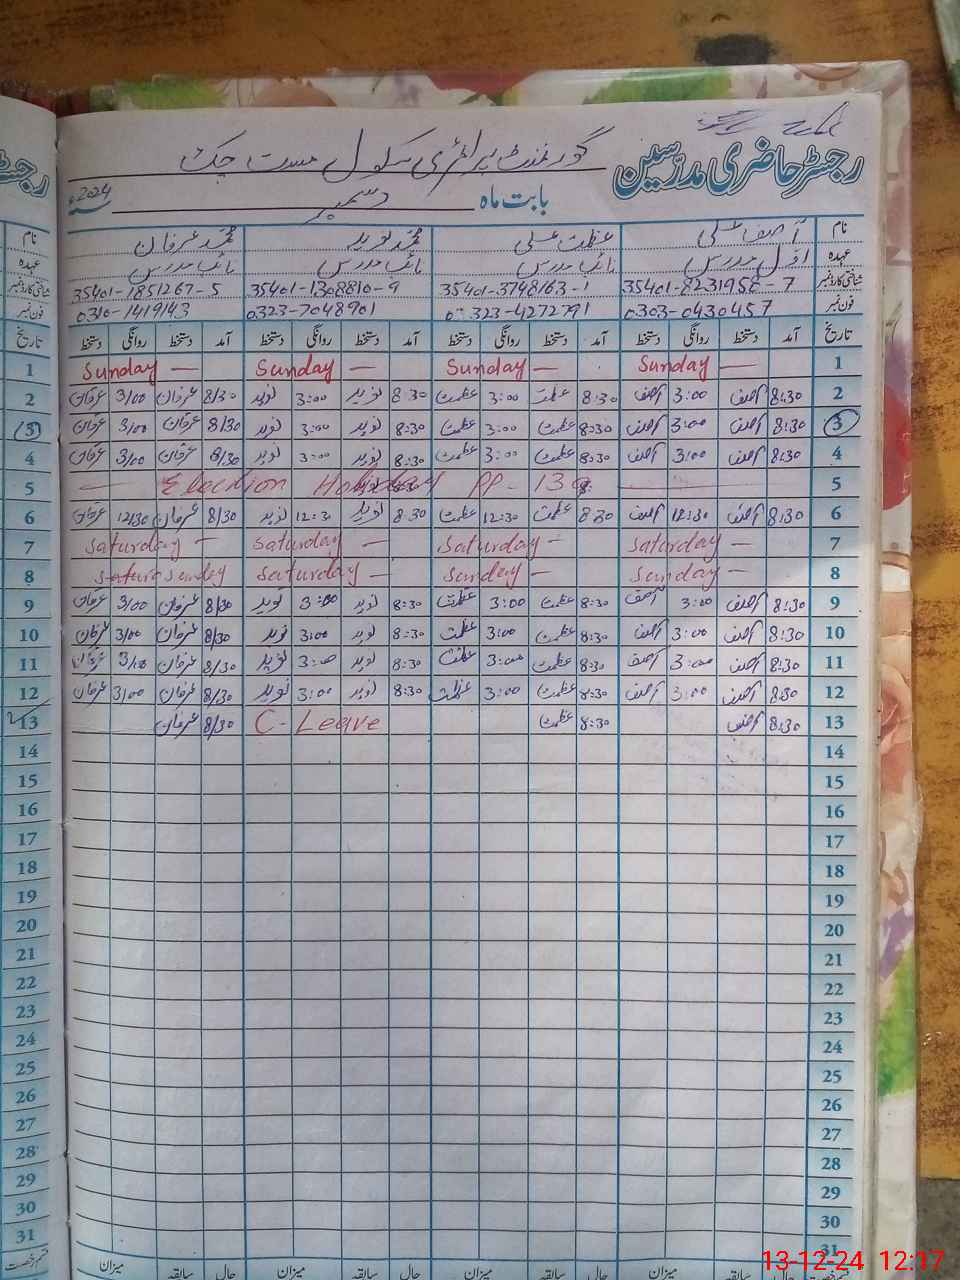 رجسٹر حاضری مدرسین گورنمنٹ پرائمری سکول مست چک
بابت ماہ دسمبر سنہ 2024ء
نام آصف علی عظمت علی محمد نوید محمد عرفان
عہدہ اول مدرس نائب مدرس نائب مدرس نائب مدرس
شناختی کارڈ نمبر 35401-8231958-7 35401-3748163-1 35401-1308810-9 35401-1851267-5
فون نمبر 0303-0430457 0323-4272791 0323-7048901 0310-1419143
تاریخ آمد دستخط روانگی دستخط آمد دستخط روانگی دستخط آمد دستخط روانگی دستخط آمد دستخط روانگی دستخط
1 Sunday — Sunday — Sunday — Sunday —
2 8:30 آصف 3:00 آصف 8:30 عظمت 3:00 عظمت 8:30 نوید 3:00 نوید 8/30 عرفان 3/00 عرفان
3 8:30 آصف 3:00 آصف 8:30 عظمت 3:00 عظمت 8:30 نوید 3:00 نوید 8/30 عرفان 3/00 عرفان
4 8:30 آصف 3:00 آصف 8:30 عظمت 3:00 عظمت 8:30 نوید 3:00 نوید 8/30 عرفان 3/00 عرفان
5 — Election Holiday PP-139 —
6 8:30 آصف 12:30 آصف 8:30 عظمت 12:30 عظمت 8:30 نوید 12:30 نوید 8/30 عرفان 12/30 عرفان
7 Saturday — Saturday — Saturday — Saturday —
8 Sunday — Sunday — Saturday — Sunday
9 8:30 آصف 3:00 آصف 8:30 عظمت 3:00 عظمت 8:30 نوید 3:00 نوید 8/30 عرفان 3/00 عرفان
10 8:30 آصف 3:00 آصف 8:30 عظمت 3:00 عظمت 8:30 نوید 3:00 نوید 8/30 عرفان 3/00 عرفان
11 8:30 آصف 3:00 آصف 8:30 عظمت 3:00 عظمت 8:30 نوید 3:00 نوید 8/30 عرفان 3/00 عرفان
12 8:30 آصف 3:00 آصف 8:30 عظمت 3:00 عظمت 8:30 نوید 3:00 نوید 8/30 عرفان 3/00 عرفان
13 8:30 آصف 8:30 عظمت C-Leave 8/30 عرفان
14
15
16
17
18
19
20
21
22
23
24
25
26
27
28
29
30
31
میزان حال سابقہ میزان حال سابقہ میزان حال سابقہ میزان
13-12-24 12:17